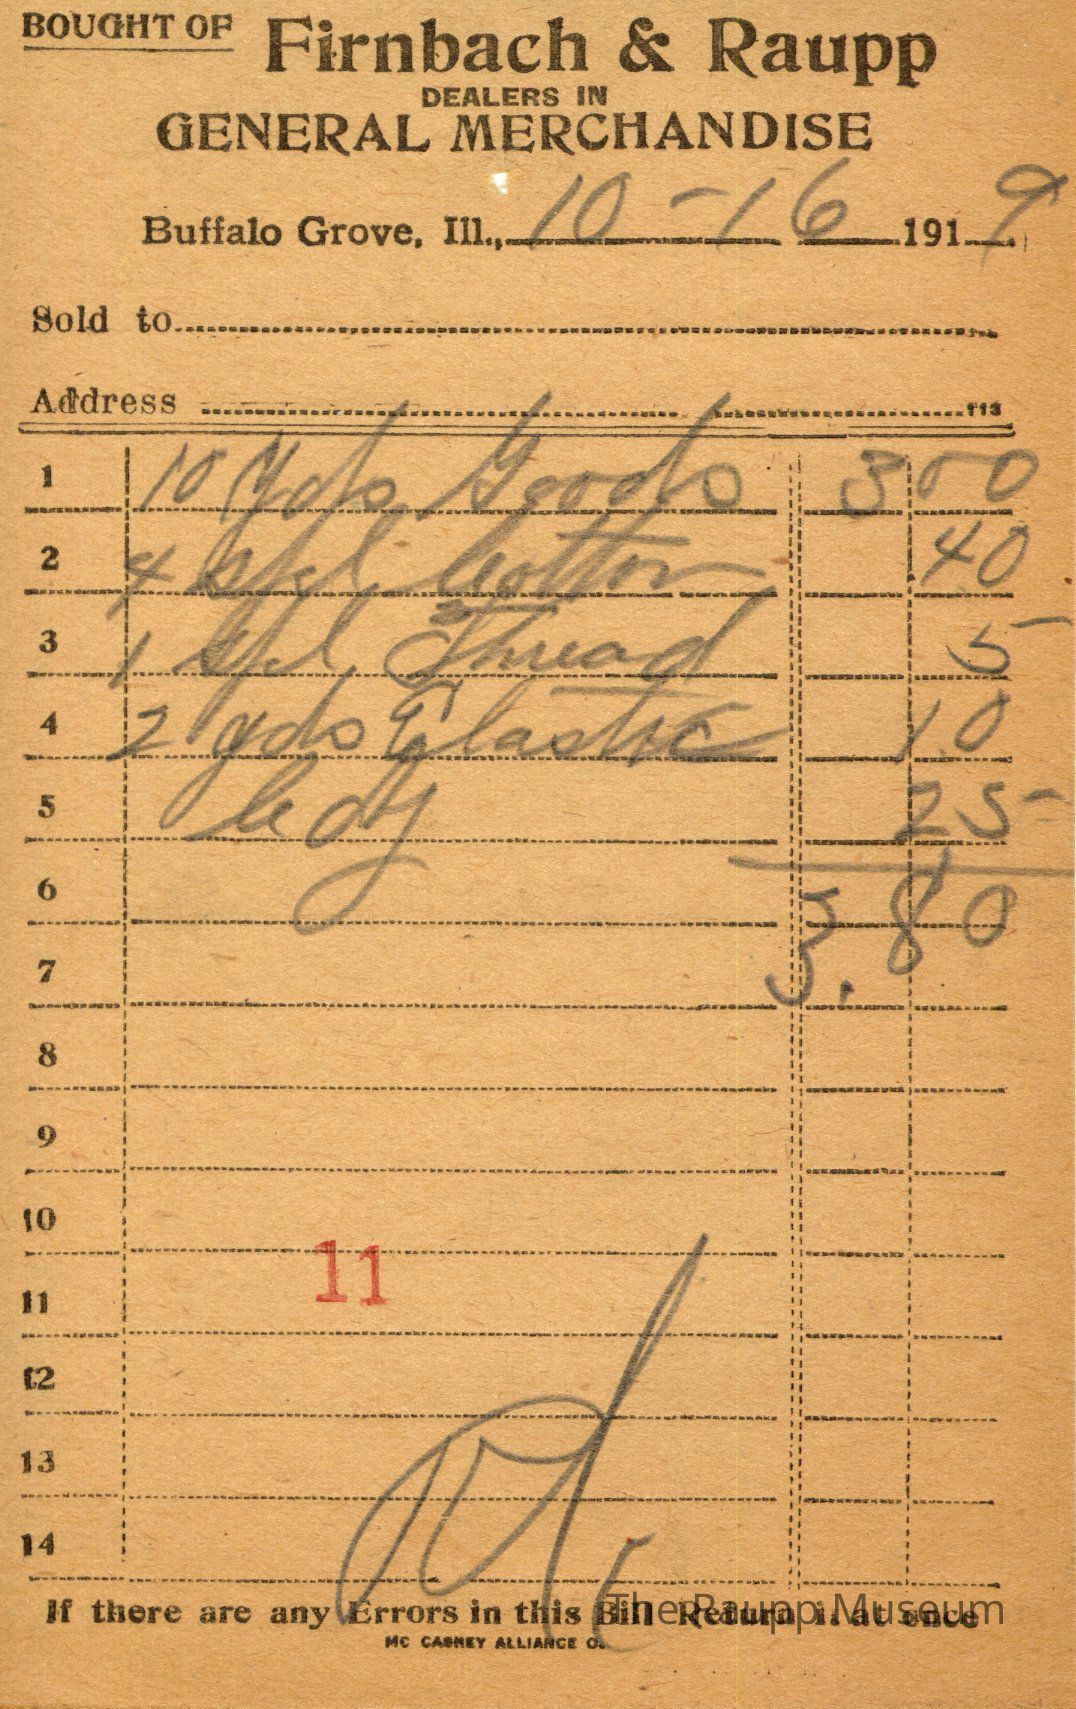 BOUGHT OF Firnbach & Raupp
DEALERS IN
GENERAL MERCHANDISE
Buffalo Grove, Ill., 10-16 1919
Sold to
Address
113
1 10 Yds Goods 3 00
2 4 Spl Cotton 40
3 1 Spl Thread 5
4 2 yds Elastic 10
5 25
6 3.80
7
8
9
10
11
11
12
13
14
If there are any Errors in this Bill Return it at once
The Raupp Museum